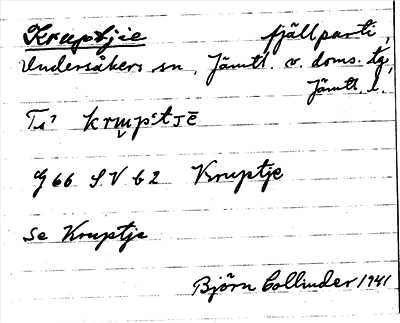 Kruptjie fjällparti,
Undersåkers sn, Jämtl. v. doms. tg,
Jämtl. l.
krup:tjē
G 66 S V b 2 Kruptje
Se Kruptje
Björn Collinder 1941